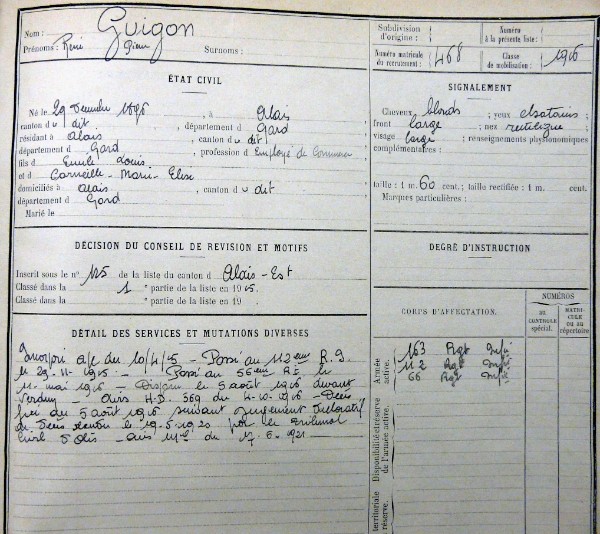 Nom : Guigon
Prénoms : René Pierre Surnoms :
Subdivision d'origine :
Numéro à la présente liste :
Numéro matricule du recrutement : 468
Classe de mobilisation : 1916
ÉTAT CIVIL
Né le 29 1896, à Alais
canton du dit, département d Gard
résidant à Alais, canton du dit,
département d Gard, profession d'Employé de Commerce
fils d Emile Louis
et d Corneille Marie Elise
domiciliés à Alais, canton du dit
département d Gard
Marié le
SIGNALEMENT
Cheveux blonds; yeux chatains;
front large; nez rectiligne
visage large; renseignements physionomiques
complémentaires :
taille : 1 m. 60 cent.; taille rectifiée : 1 m. cent.
Marques particulières :
DÉCISION DU CONSEIL DE REVISION ET MOTIFS
Inscrit sous le n° 125 de la liste du canton d Alais-Est
Classé dans la 1 e partie de la liste en 1915.
Classé dans la e partie de la liste en 19
DEGRÉ D'INSTRUCTION
DÉTAIL DES SERVICES ET MUTATIONS DIVERSES
Incorporé à/c du 10/4/15 - Passé au 112 eme R.I.
le 29-11-1915 - Passé au 56 eme RI le
11 mai 1916 - Disparu le 5 août 1916 devant
Verdun - Avis M.D. 569 du 4-10-1916 - Décès
fixé au 5 août 1916 suivant jugement déclaratif
de décès rendu le 19-5-1921 par le tribunal
civil d'Alais - avis du 17-6-1921
CORPS D'AFFECTATION.
NUMÉROS
AU CONTROLE spécial.
MATRICULE ou au répertoire
Armée active.
163 Rgt Infie
112 Rgt Infie
56 Rgt Infie
Disponibilité et réserve de l'armée active.
territoriale réserve.